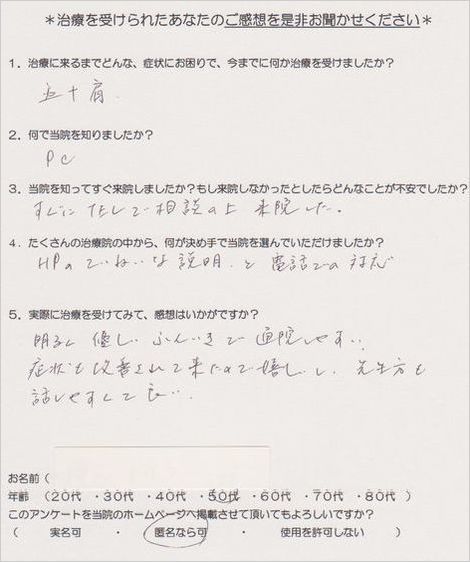 ＊治療を受けられたあなたのご感想を是非お聞かせください＊
1．治療に来るまでどんな、症状にお困りで、今までに何か治療を受けましたか？
五十肩．
2．何で当院を知りましたか？
PC
3．当院を知ってすぐ来院しましたか？もし来院しなかったとしたらどんなことが不安でしたか？
すぐにTELして相談の上 来院した。
4．たくさんの治療院の中から、何が決め手で当院を選んでいただけましたか？
HPのていねいな説明 と 電話での対応
5．実際に治療を受けてみて、感想はいかがですか？
明るく 優しい ふんいきで 通院しやすい．
症状も改善されて来たので嬉しいし、先生方も
話しやすくて良い．
お名前（
年齢 （20代 ・30代 ・40代 ・50代 ・60代 ・70代 ・80代 ）
このアンケートを当院のホームページへ掲載させて頂いてもよろしいですか？
（ 実名可 ・ 匿名なら可 ・ 使用を許可しない ）